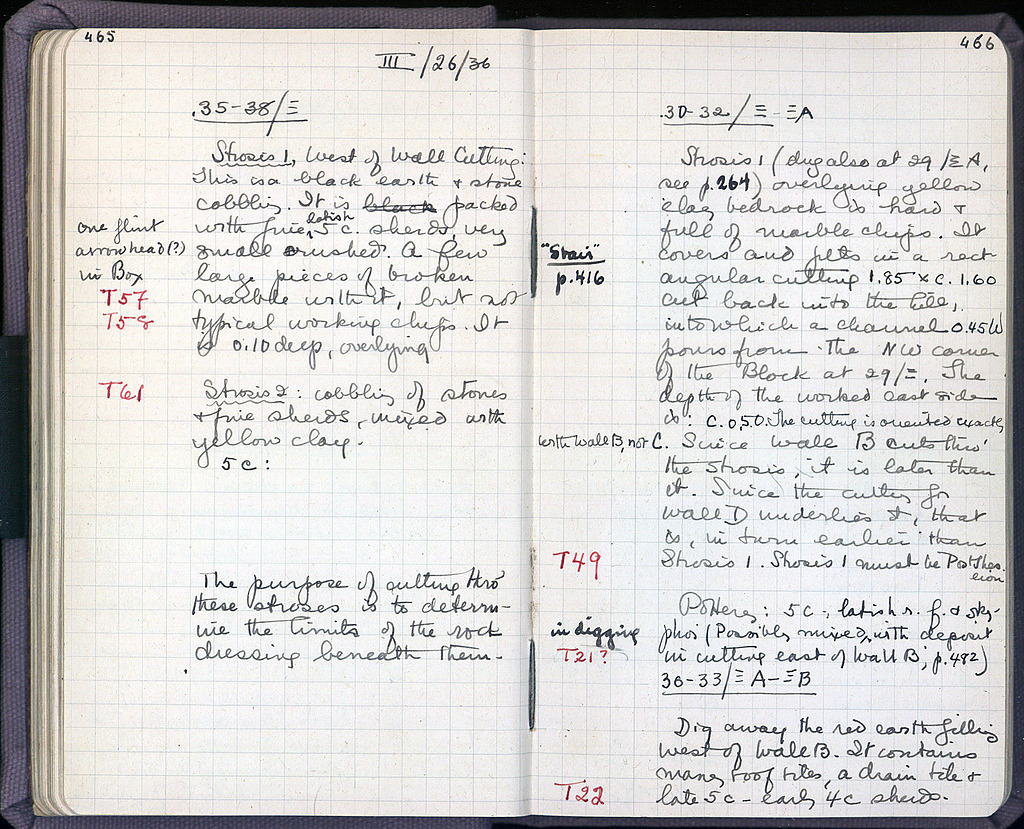 465
III/26/36
.35-38/Ξ
Strosis 1, West of Wall Cutting:
This is a black earth & stone
cobbling. It is black packed
with fine, latish 5 c. sherds, very
small crushed. A few
large pieces of broken
marble with it, but not
typical working chips. It
is 0.10 deep, overlying
one flint
arrowhead(?)
in Box
T57
T58
T61
Strosis 2: cobbling of stones
& fine sherds, mixed with
yellow clay.
5 c:
The purpose of cutting thro'
these stroses is to determ-
ine the limits of the rock
dressing beneath them.
466
.30-32/Ξ - ΞA
Strosis 1 (dug also at 29/ΞA,
see p. 264) overlying yellow
clay bedrock is hard &
full of marble chips. It
covers and fills in a rect
angular cutting 1.85 x c. 1.60
cut back into the hill,
into which a channel 0.45W
pours from the NW corner
of the Block at 29/Ξ. The
depth of the worked east side
is: c. 0.50. The cutting is oriented exactly
with Wall B, not C. Since wall B cuts thro'
the strosis, it is later than
it. Since the cutting for
Wall D underlies it, that
is, in turn earlier than
Strosis 1. Strosis 1 must be Post Thes.
eion
"Stair"
p. 416
T49
Pottery: 5 c., latish r. f. & sky-
phoi (Possibly mixed with deposit
in cutting east of Wall B; p. 482)
in digging
T21?
30-33/ΞA-ΞB
Dig away the red earth filling
west of Wall B. It contains
many roof tiles, a drain tile &
late 5 c - early 4 c sherds.
T22